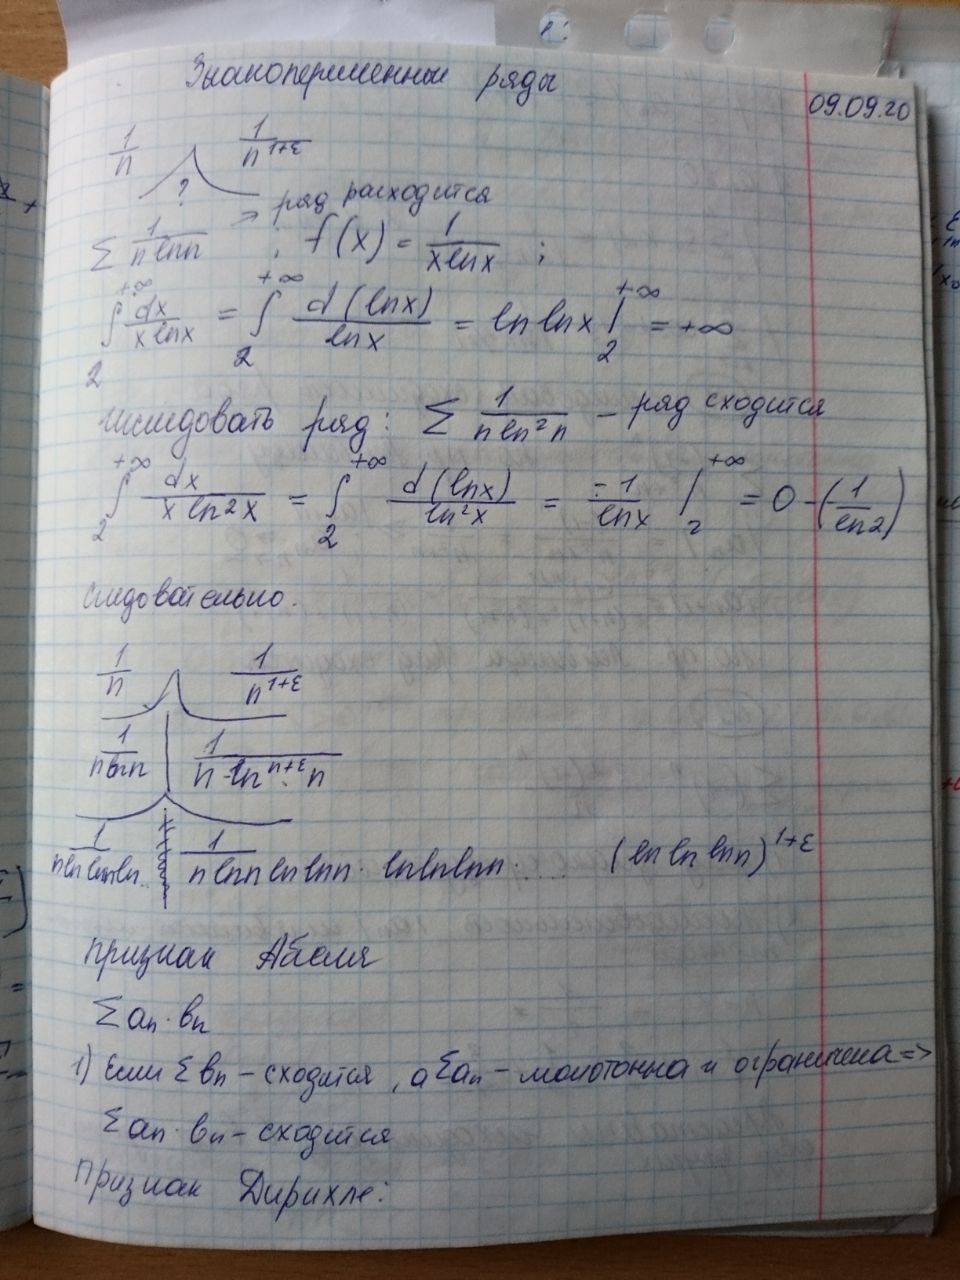 Знакопеременные ряды
09.09.20
1/n 1/n^(1+ε)
?
→ ряд расходится
Σ 1/(n ln n) ; f(x) = 1/(x ln x) ;
∫₂^(+∞) dx/(x ln x) = ∫₂^(+∞) d(ln x)/(ln x) = ln ln x |₂^(+∞) = +∞
Исследовать ряд: Σ 1/(n ln²n) – ряд сходится
∫₂^(+∞) dx/(x ln²x) = ∫₂^(+∞) d(ln x)/(ln²x) = -1/(ln x) |₂^(+∞) = 0 - (-1/(ln 2))
Следовательно.
1/n 1/n^(1+ε)
1/(n ln n) 1/(n · ln^(n+ε) n)
1/ 1/(n ln n ln ln n · ln ln ln n ..... (ln ln ln n)^(1+ε)
Признак Абеля
Σ aₙ · bₙ
1) Если Σ bₙ – сходится, а Σaₙ – монотонна и ограничена =>
Σ aₙ · bₙ – сходится
Признак Дирихле: